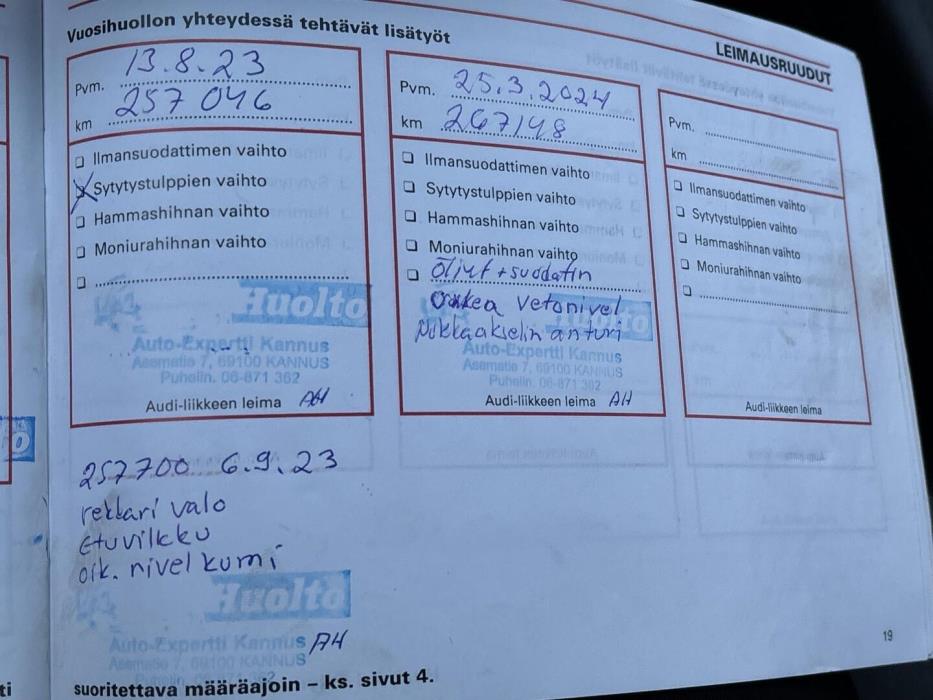 Vuosihuollon yhteydessä tehtävät lisätyöt
LEIMAUSRUUDUT
Pvm. 13.8.23
km 257 046
Ilmansuodattimen vaihto
X Sytytystulppien vaihto
Hammashihnan vaihto
Moniurahihnan vaihto
Huolto
Auto-Expertti Kannus
Asematie 7, 69100 KANNUS
Puhelin. 06-871 362
Audi-liikkeen leima AH
Pvm. 25.3.2024
km 267148
Ilmansuodattimen vaihto
Sytytystulppien vaihto
Hammashihnan vaihto
Moniurahihnan vaihto
Öljyt + suodatin
oikea vetonivel
Nokkaakselin anturi
Huolto
Auto-Expertti Kannus
Asematie 7, 69100 KANNUS
Puhelin. 06-871 362
Audi-liikkeen leima AH
Pvm.
km
Ilmansuodattimen vaihto
Sytytystulppien vaihto
Hammashihnan vaihto
Moniurahihnan vaihto
Audi-liikkeen leima
257700 6.9.23
rekkari valo
etuvilkku
oik. nivel kumi
Huolto
Auto-Expertti Kannus AH
Asematie 7, 69100 KANNUS
19
suoritettava määräajoin – ks. sivut 4.